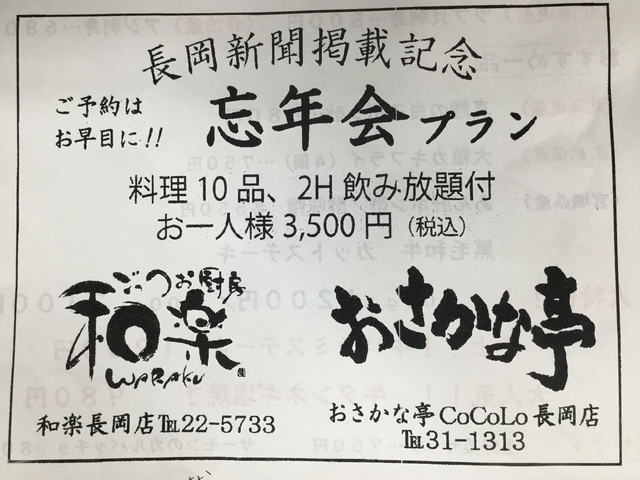 長岡新聞掲載記念
ご予約は
お早目に!!
忘年会プラン
料理10品、2H飲み放題付
お一人様3,500円(税込)
ごっつお厨房
和楽
WARAKU
おさかな亭
和楽長岡店℡22-5733
おさかな亭CoCoLo長岡店
℡31-1313